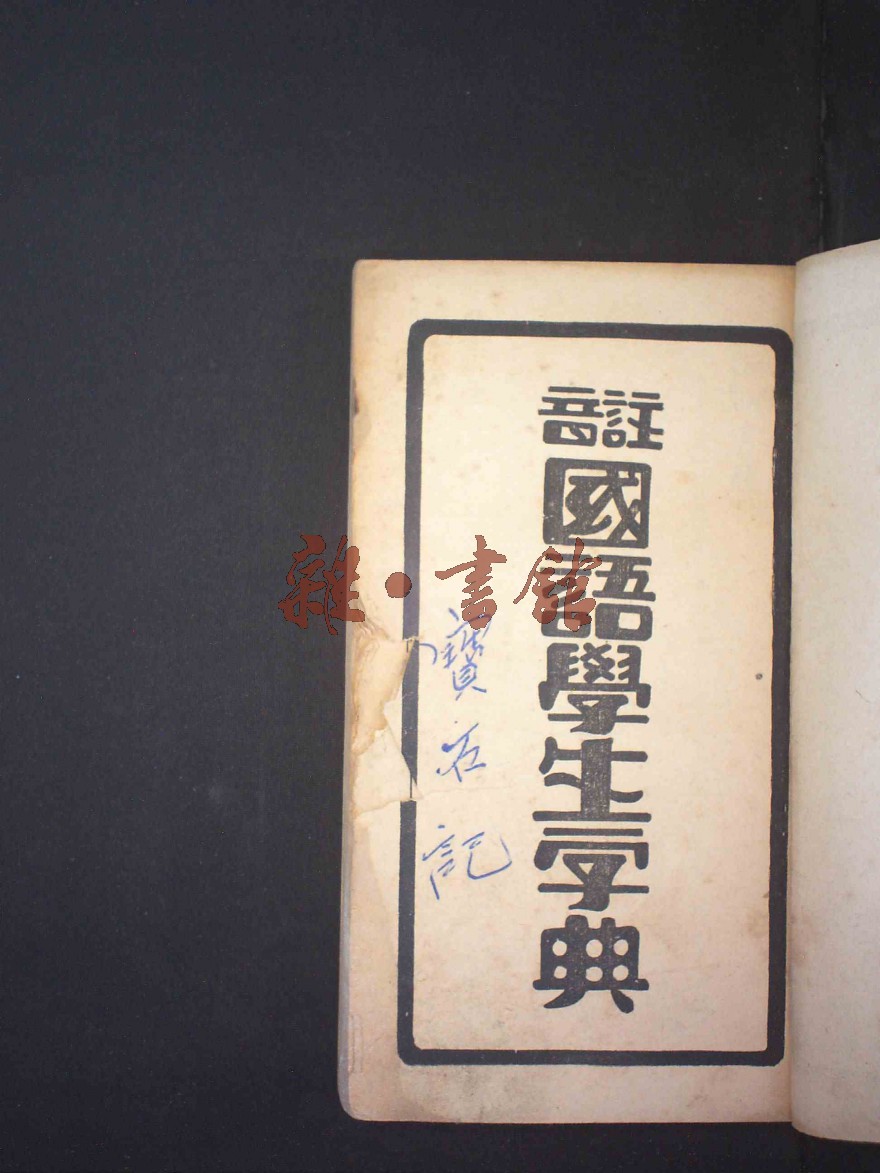 註音
國語學生字典
寶石記
雜·書館